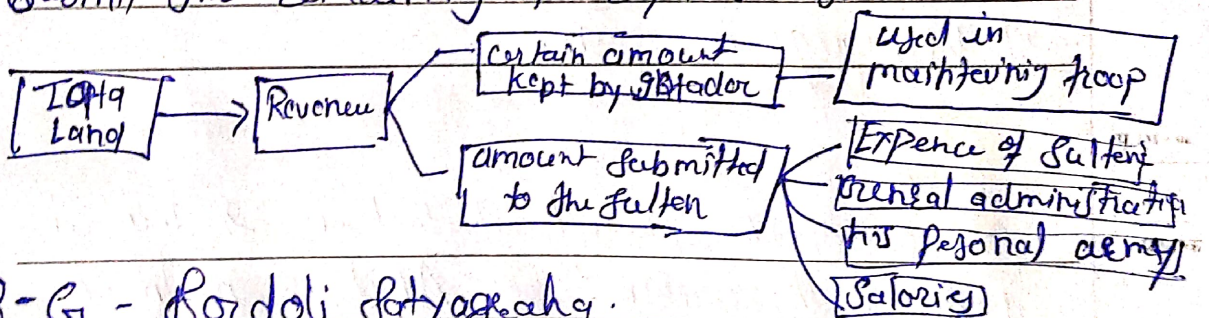 IQta
Land
Reveneu
certain amount
kept by iqtador
used in
maintevinig troop
amount submitted
to the sulten
Expence of Sulteni
his Pesonal army
Salories
Bordoli Satyageaha.